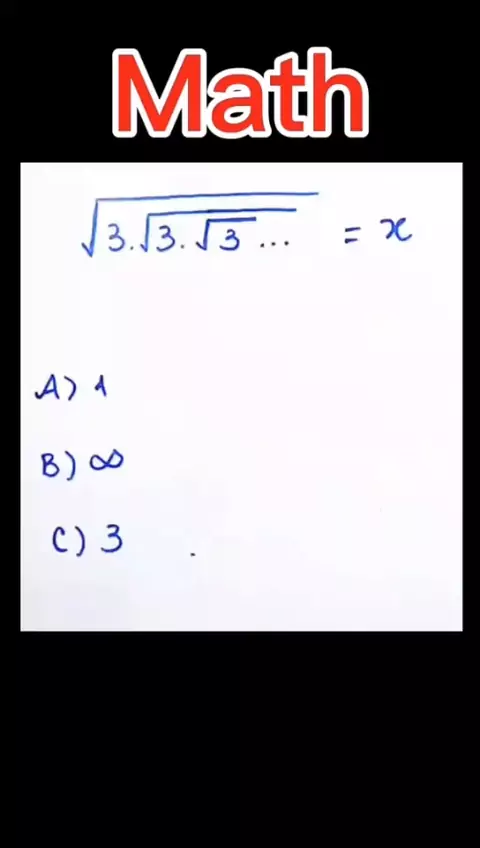 Math
√3.√3.√3... = x
A) 1
B) ∞
C) 3